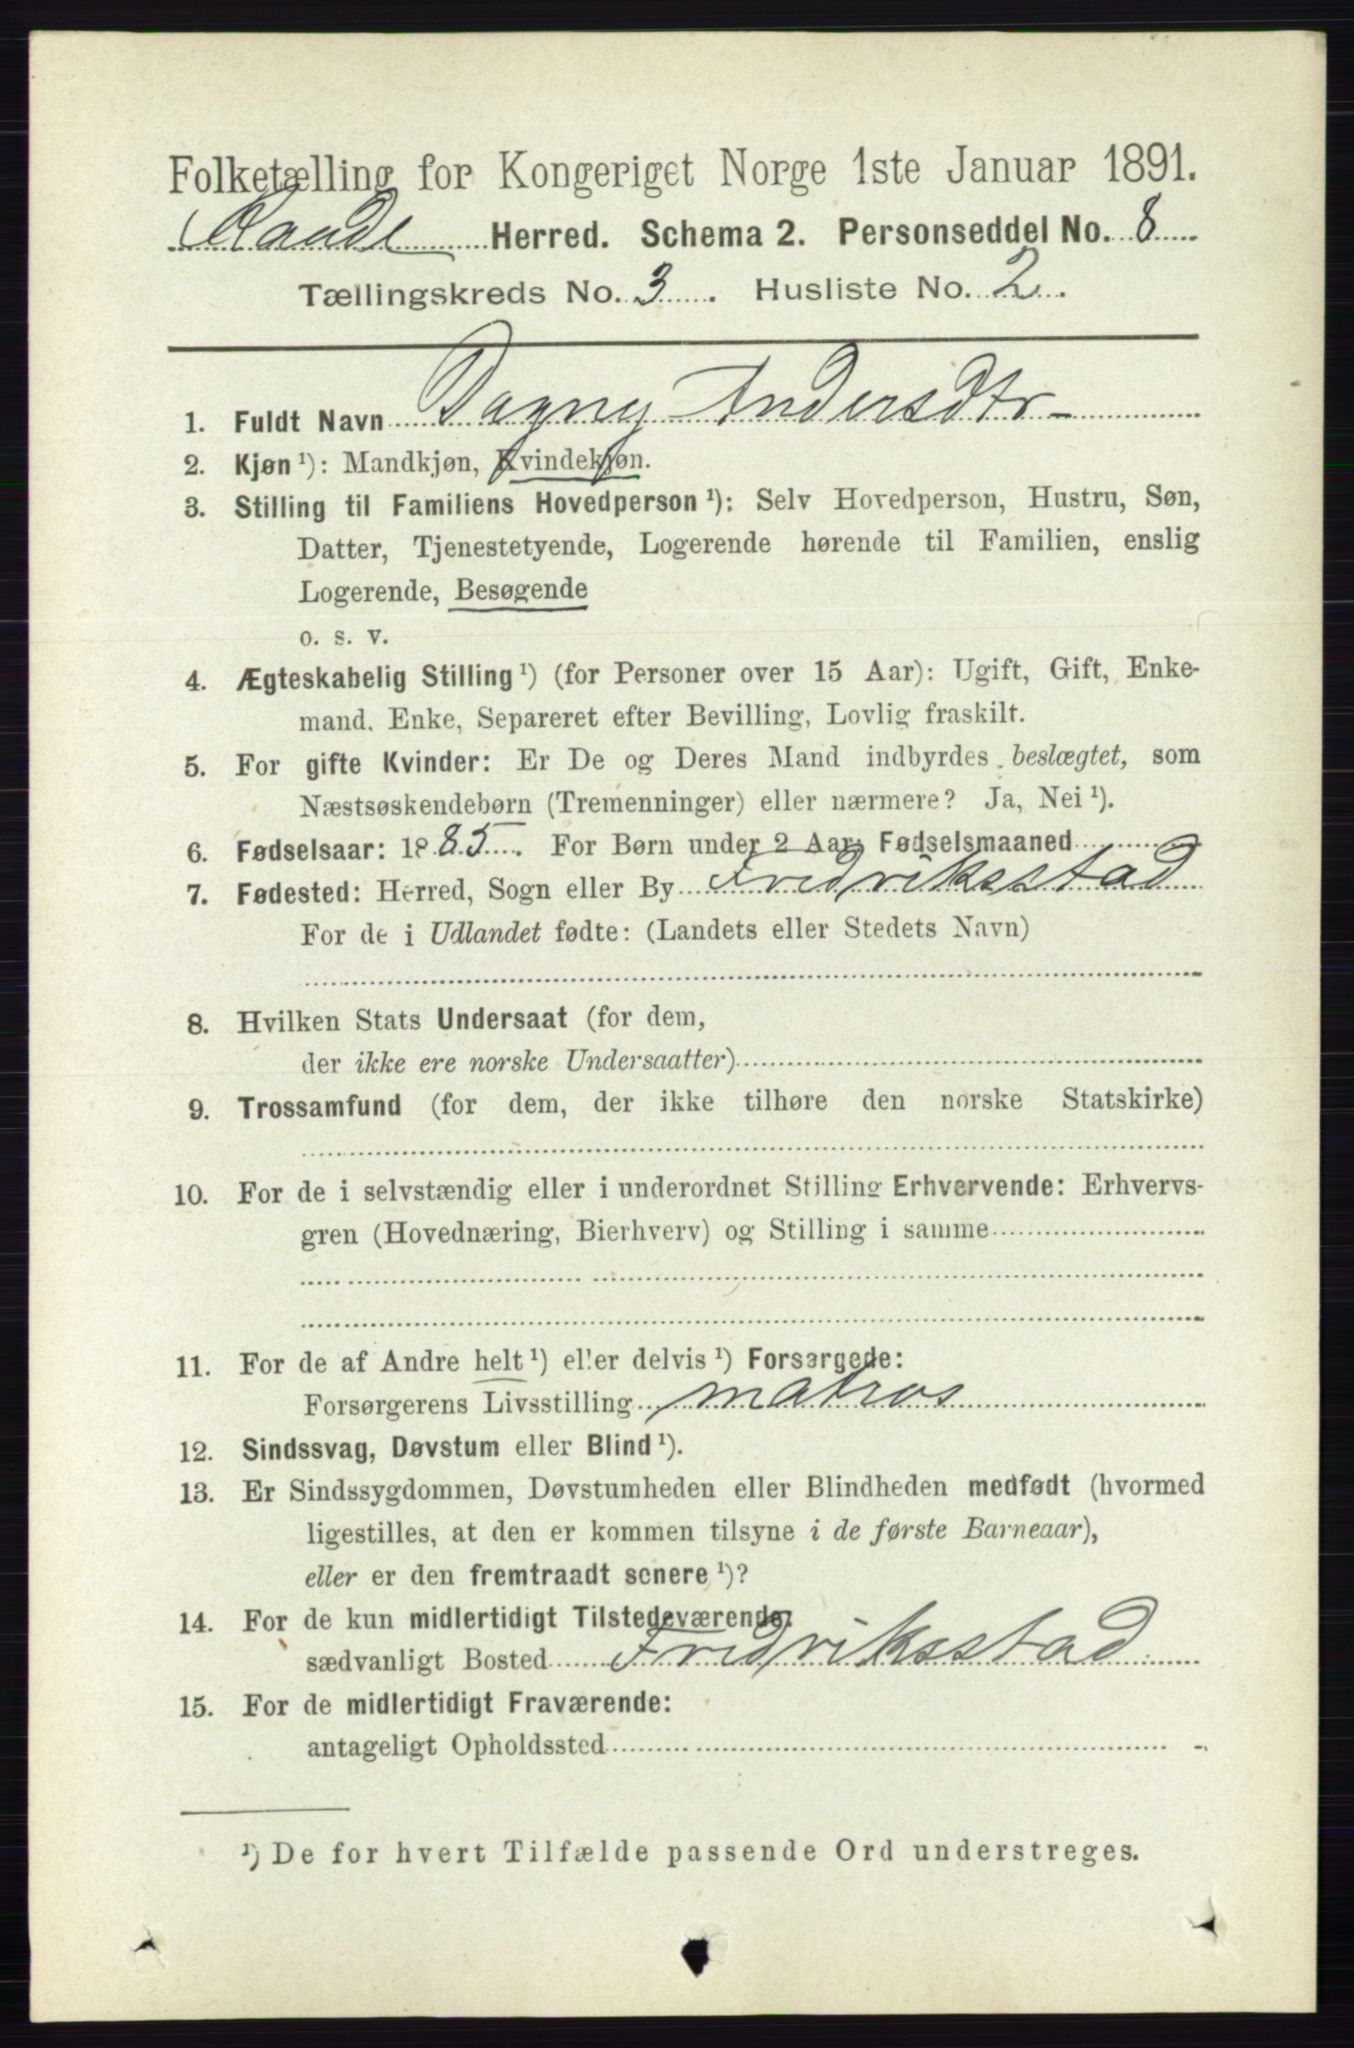 Folketælling for Kongeriget Norge 1ste Januar 1891.
Raade Herred. Schema 2. Personseddel No. 8
Tællingskreds No. 3. Husliste No. 2.
1. Fuldt Navn Dagny Andersdtr
2. Kjøn ¹): Mandkjøn, Kvindekjøn.
3. Stilling til Familiens Hovedperson ¹): Selv Hovedperson, Hustru, Søn,
Datter, Tjenestetyende, Logerende hørende til Familien, enslig
Logerende, Besøgende
o. s. v.
4. Ægteskabelig Stilling ¹) (for Personer over 15 Aar): Ugift, Gift, Enke-
mand, Enke, Separeret efter Bevilling, Lovlig fraskilt.
5. For gifte Kvinder: Er De og Deres Mand indbyrdes beslægtet, som
Næstsøskendebørn (Tremenninger) eller nærmere? Ja, Nei ¹).
6. Fødselsaar: 1885. For Børn under 2 Aar: Fødselsmaaned
7. Fødested: Herred, Sogn eller By Fredriksstad
For de i Udlandet fødte: (Landets eller Stedets Navn)
8. Hvilken Stats Undersaat (for dem,
der ikke ere norske Undersaatter)
9. Trossamfund (for dem, der ikke tilhøre den norske Statskirke)
10. For de i selvstændig eller i underordnet Stilling Erhvervende: Erhvervs-
gren (Hovednæring, Bierhverv) og Stilling i samme
11. For de af Andre helt ¹) eller delvis ¹) Forsørgede:
Forsørgerens Livsstilling matros
12. Sindssvag, Døvstum eller Blind ¹).
13. Er Sindssygdommen, Døvstumheden eller Blindheden medfødt (hvormed
ligestilles, at den er kommen tilsyne i de første Barneaar),
eller er den fremtraadt senere ¹)?
14. For de kun midlertidigt Tilstedeværende:
sædvanligt Bosted Fredriksstad
15. For de midlertidigt Fraværende:
antageligt Opholdssted
¹) De for hvert Tilfælde passende Ord understreges.